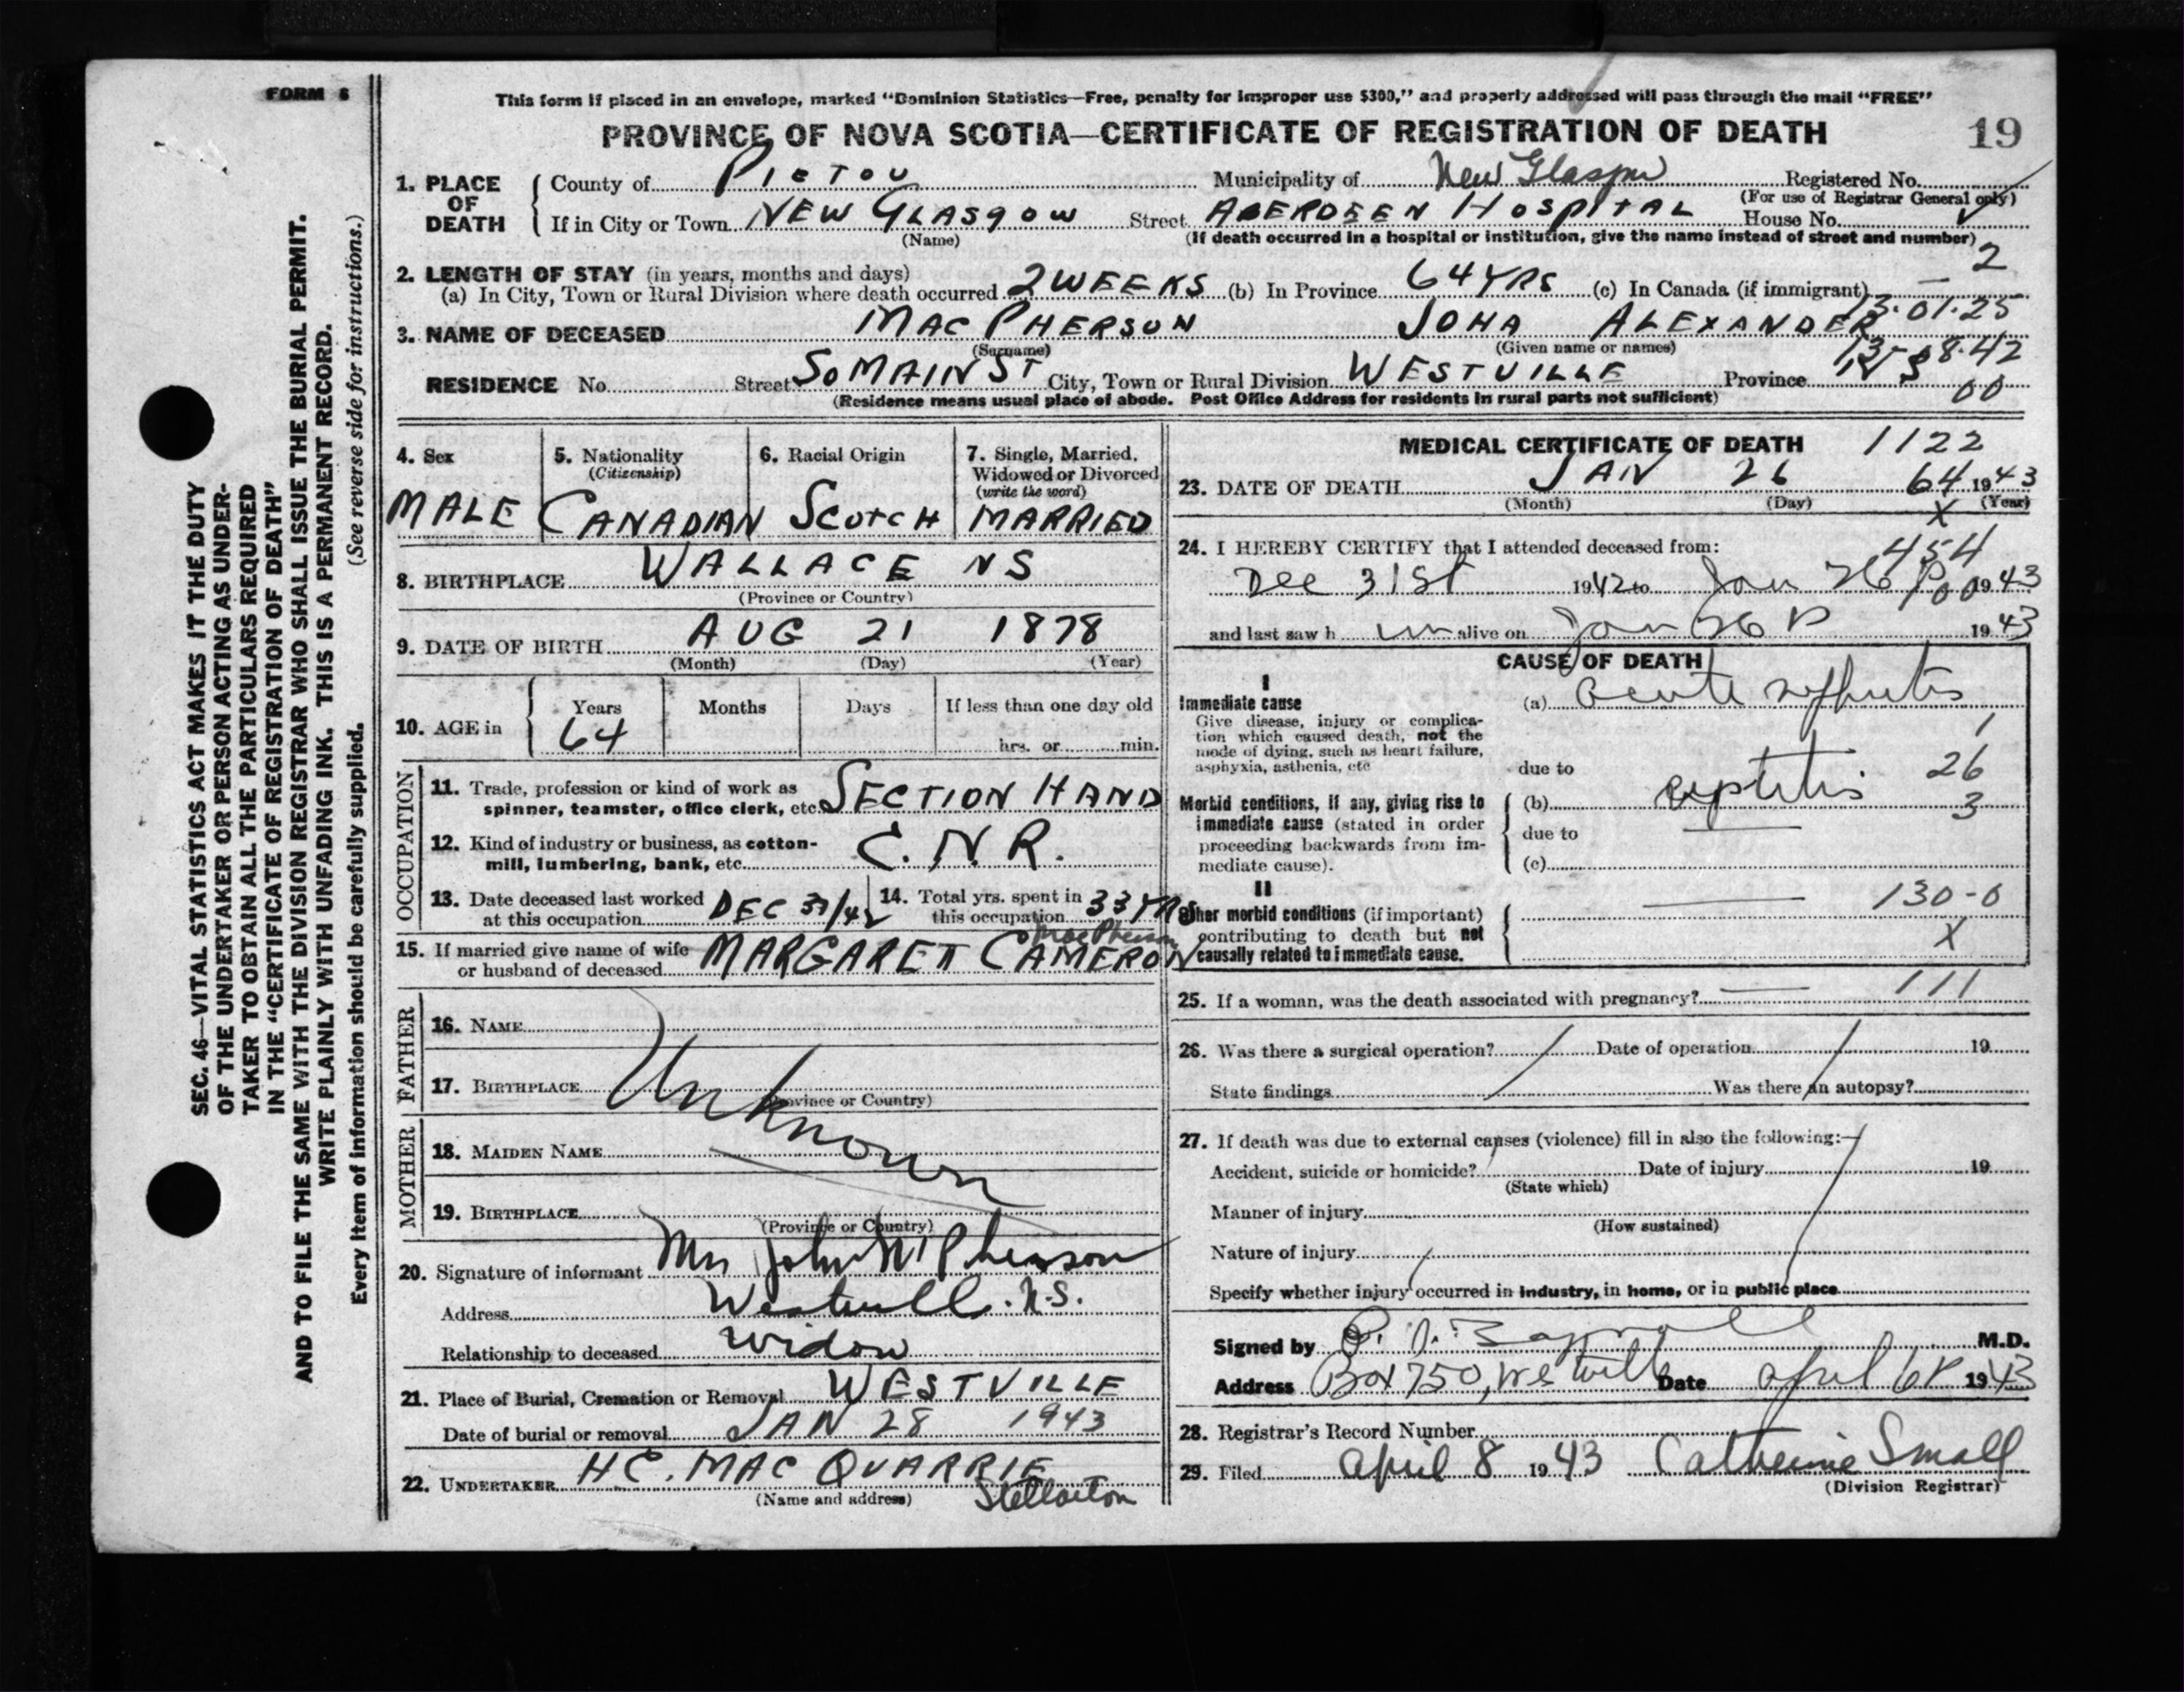 FORM 6
This form if placed in an envelope, marked "Dominion Statistics—Free, penalty for improper use $300," and properly addressed will pass through the mail "FREE"
PROVINCE OF NOVA SCOTIA—CERTIFICATE OF REGISTRATION OF DEATH 19
1. PLACE OF DEATH County of PICTOU Municipality of New Glasgow Registered No.
(For use of Registrar General only)
If in City or Town NEW GLASGOW Street ABERDEEN HOSPITAL House No.
(Name) (If death occurred in a hospital or institution, give the name instead of street and number)
2
2. LENGTH OF STAY (in years, months and days)
(a) In City, Town or Rural Division where death occurred 2 WEEKS (b) In Province 64 YRS (c) In Canada (if immigrant) —
13.01.25
3. NAME OF DECEASED MACPHERSON JOHN ALEXANDER
(Surname) (Given name or names)
13 8.42
RESIDENCE No. Street So MAIN ST City, Town or Rural Division WESTVILLE Province NS
(Residence means usual place of abode. Post Office Address for residents in rural parts not sufficient) 00
4. Sex MALE
5. Nationality (Citizenship) CANADIAN
6. Racial Origin SCOTCH
7. Single, Married, Widowed or Divorced (write the word) MARRIED
8. BIRTHPLACE WALLACE NS
(Province or Country)
9. DATE OF BIRTH AUG 21 1878
(Month) (Day) (Year)
10. AGE in Years 64 Months Days If less than one day old
hrs. or min.
OCCUPATION
11. Trade, profession or kind of work as spinner, teamster, office clerk, etc. SECTION HAND
12. Kind of industry or business, as cotton-mill, lumbering, bank, etc. C.N.R.
13. Date deceased last worked at this occupation DEC 31/42
14. Total yrs. spent in this occupation 33 YRS
15. If married give name of wife or husband of deceased MARGARET CAMERON MacPherson
FATHER
16. NAME
17. BIRTHPLACE
(Province or Country)
Unknown
MOTHER
18. MAIDEN NAME
19. BIRTHPLACE
(Province or Country)
20. Signature of informant Mrs John McPherson
Address Westville. N.S.
Relationship to deceased Widow
21. Place of Burial, Cremation or Removal WESTVILLE
Date of burial or removal JAN 28 1943
22. UNDERTAKER HC. MACQUARRIE
(Name and address) Stellarton
MEDICAL CERTIFICATE OF DEATH 1122
23. DATE OF DEATH JAN 26 64 1943
(Month) (Day) (Year)
X
24. I HEREBY CERTIFY that I attended deceased from: 454
Dec 31st 1942 to Jan 26 1943
and last saw h im alive on Jan 26 1943
CAUSE OF DEATH
I
Immediate cause (a) acute
Give disease, injury or complication which caused death, not the mode of dying, such as heart failure, asphyxia, asthenia, etc 1
due to 26
Morbid conditions, if any, giving rise to immediate cause (stated in order proceeding backwards from immediate cause). (b) 3
due to
(c)
II
Other morbid conditions (if important) contributing to death but not causally related to immediate cause. 130-0
X
25. If a woman, was the death associated with pregnancy? — 111
26. Was there a surgical operation? Date of operation 19
State findings Was there an autopsy?
27. If death was due to external causes (violence) fill in also the following:—
Accident, suicide or homicide? Date of injury 19
(State which)
Manner of injury
(How sustained)
Nature of injury
Specify whether injury occurred in industry, in home, or in public place
Signed by M.D.
Address Box 750, Westville Date april 6 1943
28. Registrar's Record Number
29. Filed april 8 1943 Catherine Small
(Division Registrar)
SEC. 46—VITAL STATISTICS ACT MAKES IT THE DUTY
OF THE UNDERTAKER OR PERSON ACTING AS UNDER-
TAKER TO OBTAIN ALL THE PARTICULARS REQUIRED
IN THE "CERTIFICATE OF REGISTRATION OF DEATH"
AND TO FILE THE SAME WITH THE DIVISION REGISTRAR WHO SHALL ISSUE THE BURIAL PERMIT.
WRITE PLAINLY WITH UNFADING INK. THIS IS A PERMANENT RECORD.
Every item of information should be carefully supplied. (See reverse side for instructions.)